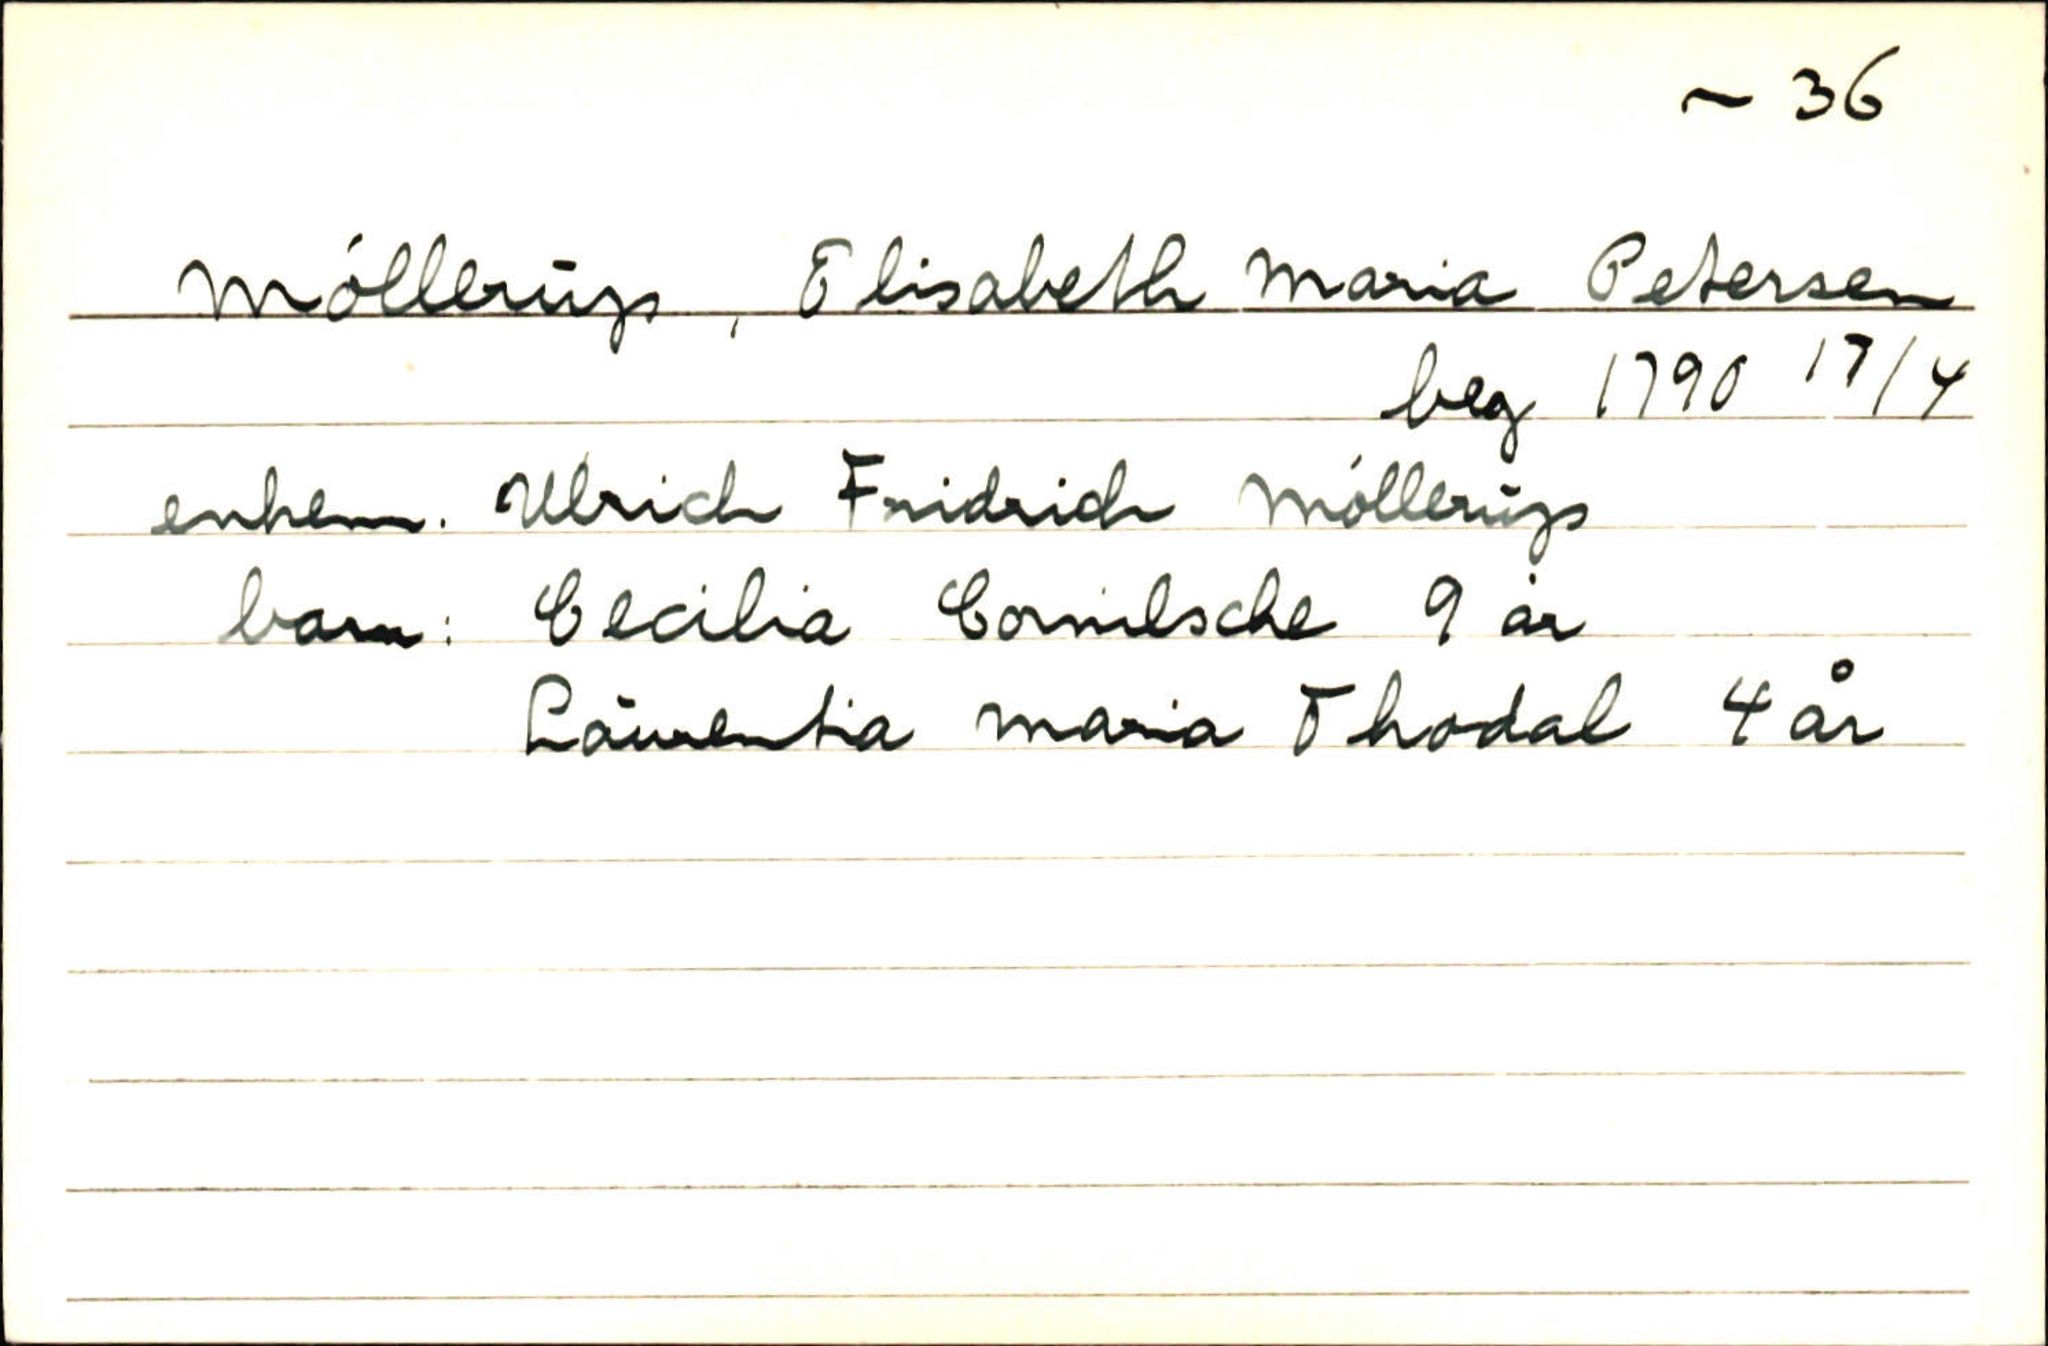 ~ 36
Móllerūp, Elisabeth Maria Petersen
beg 1790 17/4
enkem. Ulrich Fridrich Móllerūp
barn: Cecilia Cornilsche 9 år
Laūrentia Maria Thodal 4 år